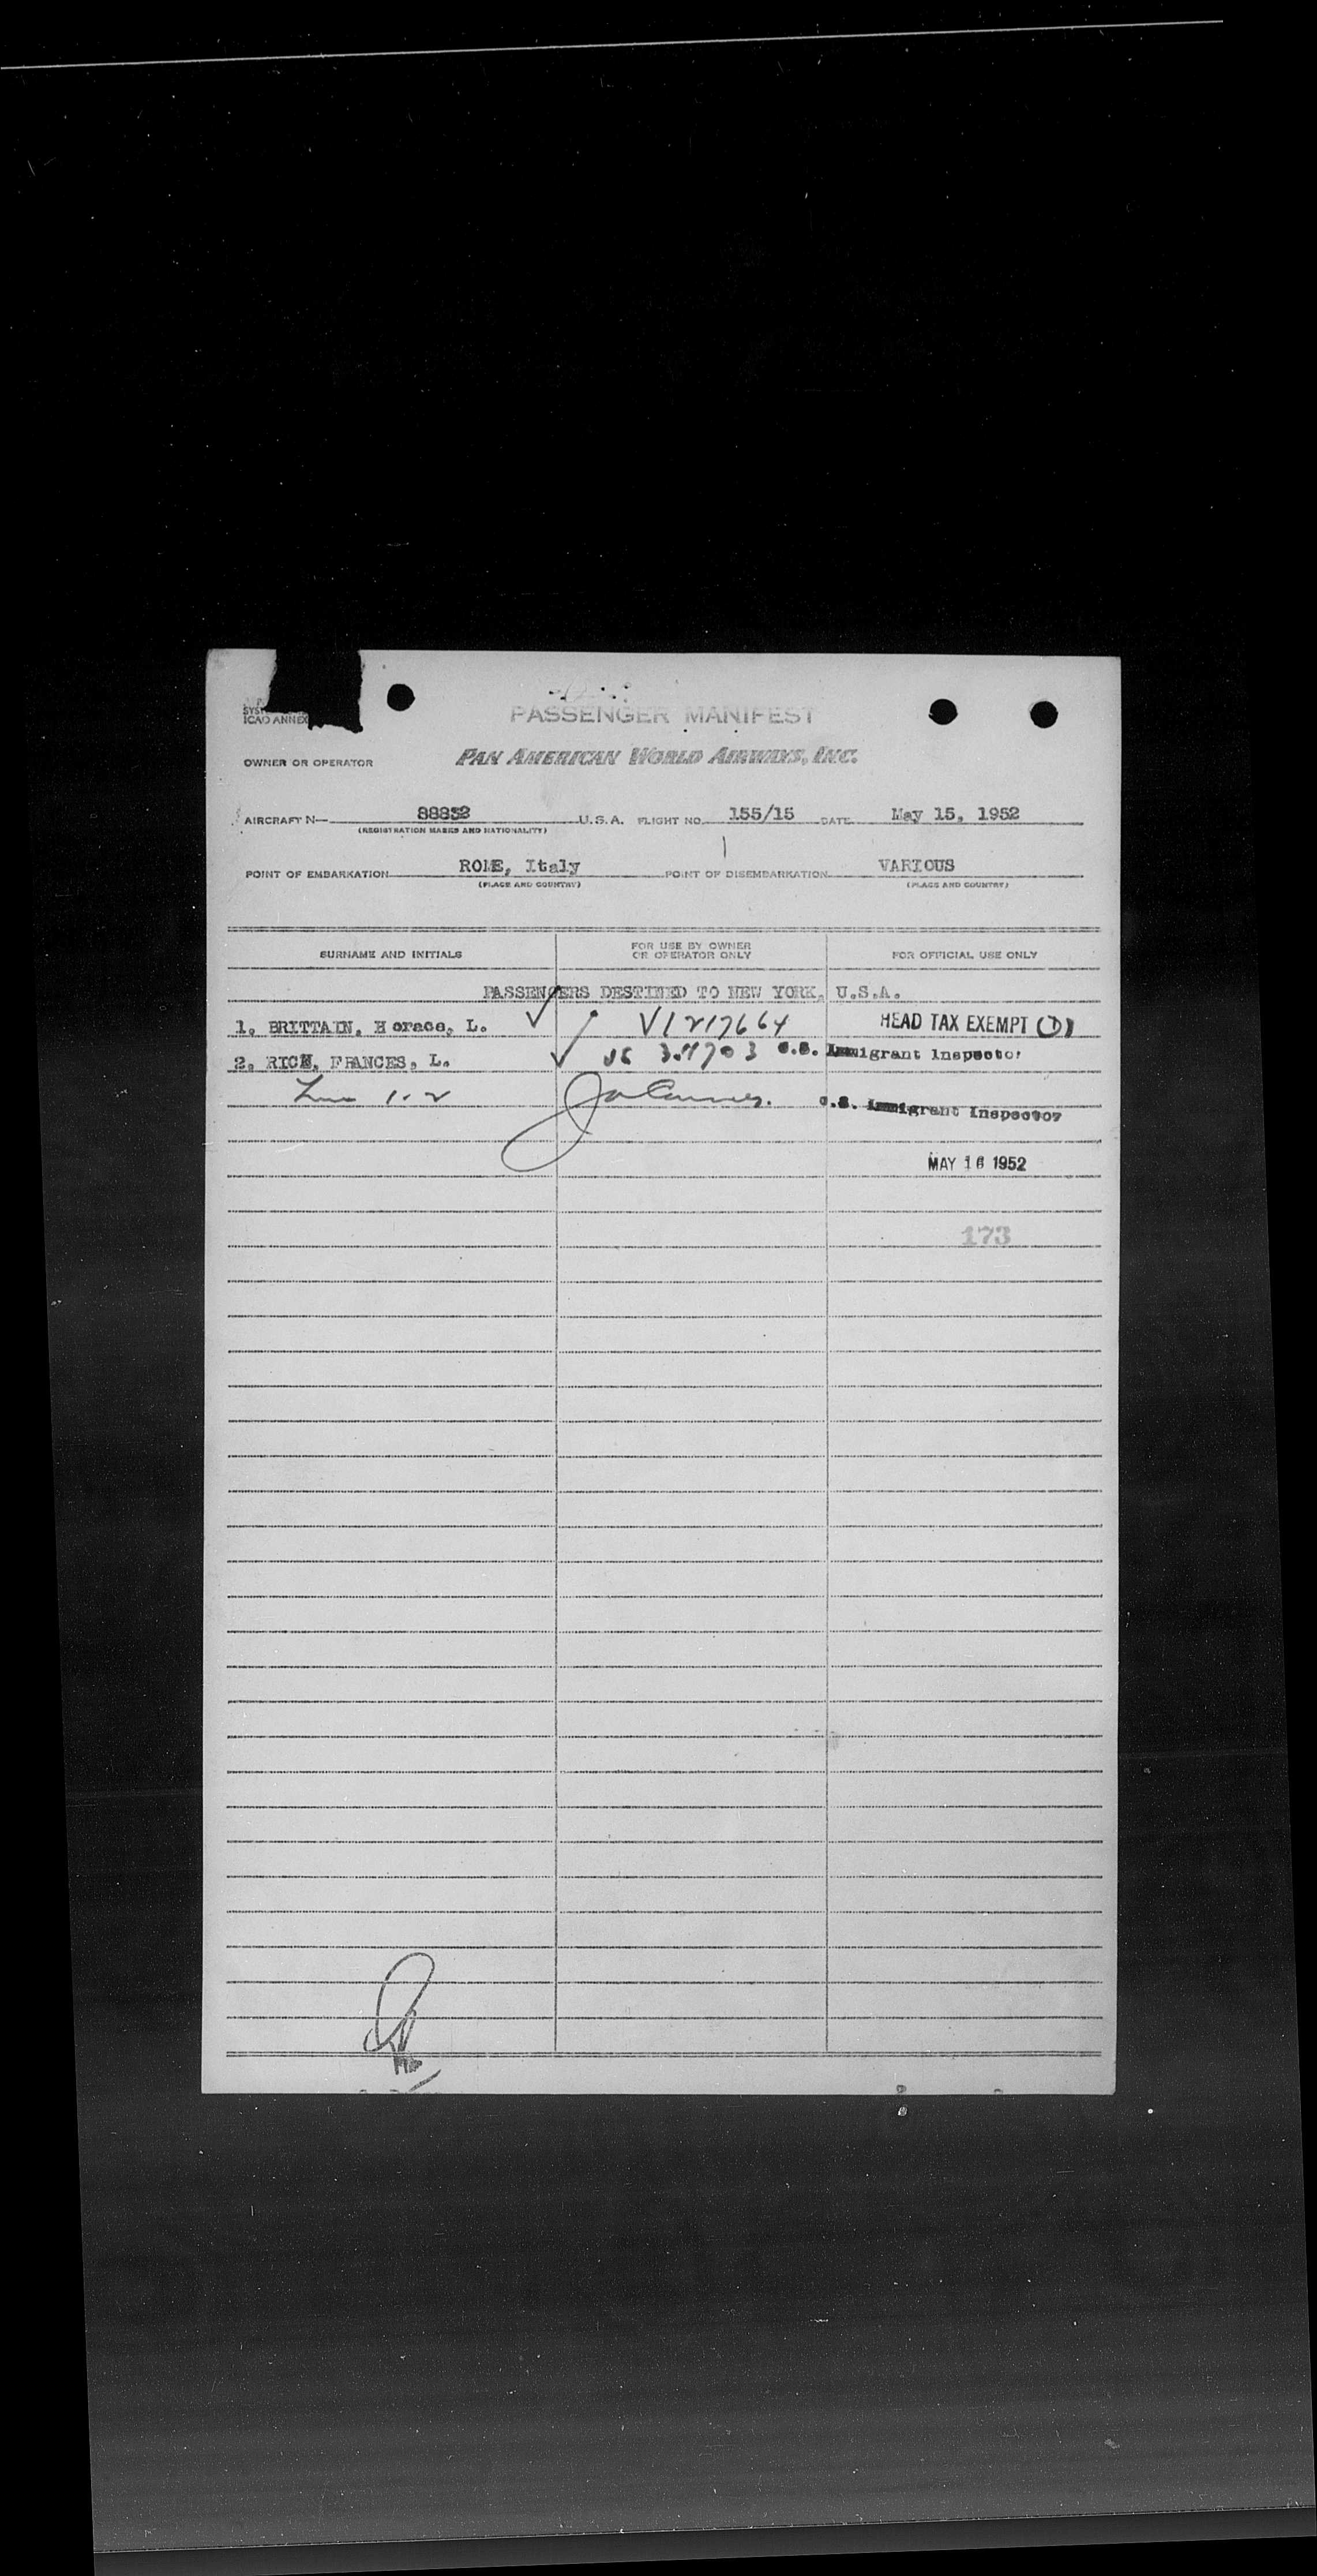 SYST
ICAO ANNEX
PASSENGER MANIFEST
OWNER OR OPERATOR PAN AMERICAN WORLD AIRWAYS, INC.
AIRCRAFT N— 88832 U.S.A. FLIGHT NO. 155/15 DATE May 15, 1952
(REGISTRATION MARKS AND NATIONALITY)
POINT OF EMBARKATION ROME, Italy POINT OF DISEMBARKATION VARIOUS
(PLACE AND COUNTRY) (PLACE AND COUNTRY)
SURNAME AND INITIALS FOR USE BY OWNER OR OPERATOR ONLY FOR OFFICIAL USE ONLY
PASSENGERS DESTINED TO NEW YORK, U.S.A.
1. BRITTAIN, Horace, L. V1217664 HEAD TAX EXEMPT (1)
2. RICH, FRANCES, L. U.S. Immigrant Inspector
1-2 U.S. Immigrant Inspector
MAY 16 1952
173